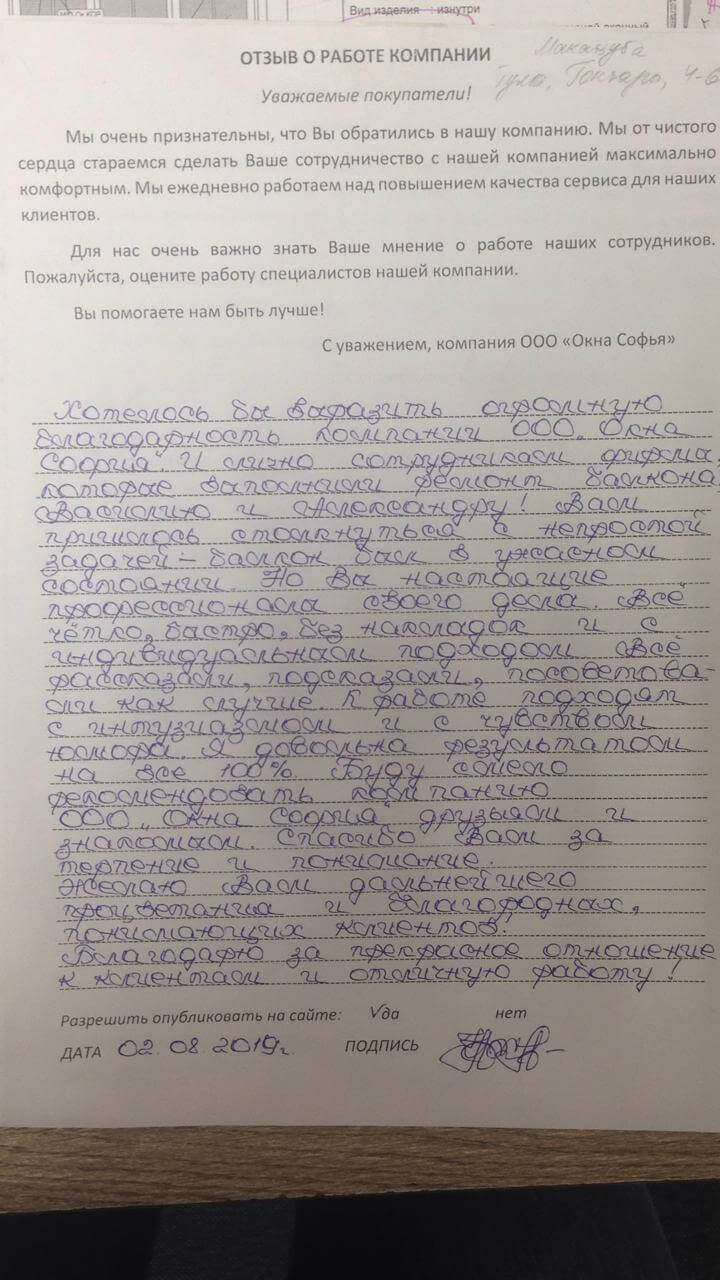 Вид изделия : изнутри
ОТЗЫВ О РАБОТЕ КОМПАНИИ
Уважаемые покупатели!
Мы очень признательны, что Вы обратились в нашу компанию. Мы от чистого
сердца стараемся сделать Ваше сотрудничество с нашей компанией максимально
комфортным. Мы ежедневно работаем над повышением качества сервиса для наших
клиентов.
Для нас очень важно знать Ваше мнение о работе наших сотрудников.
Пожалуйста, оцените работу специалистов нашей компании.
Вы помогаете нам быть лучше!
С уважением, компания ООО «Окна Софья»
Хотелось бы выразить огромную
благодарность компании ООО „Окна
Софрия". И лично сотрудникам фирмы,
которые выполнили ремонт балкона
Василию и Александру! Вам
пришлось столкнуться с непростой
задачей – балкон был в ужасном
состоянии. Но Вы настоящие
профессионалы своего дела. Всё
чётко, быстро, без накладок и с
индивидуальным подходом. Всё
рассказали, подсказали, посоветова-
ли как лучше. К работе подходят
с интузиазмом и с чувством
юмора. Я довольна результатом
на все 100%. Буду смело
рекомендовать компанию
ООО „Окна Софрия" друзьям и
знакомым. Спасибо Вам за
терпение и понимание.
Желаю Вам дальнейшего
процветания и благородных,
понимающих клиентов!
Благодарю за прекрасное отношение
к клиентам и отличную работу!
Разрешить опубликовать на сайте: V да нет
ДАТА 02.08.2019г. ПОДПИСЬ